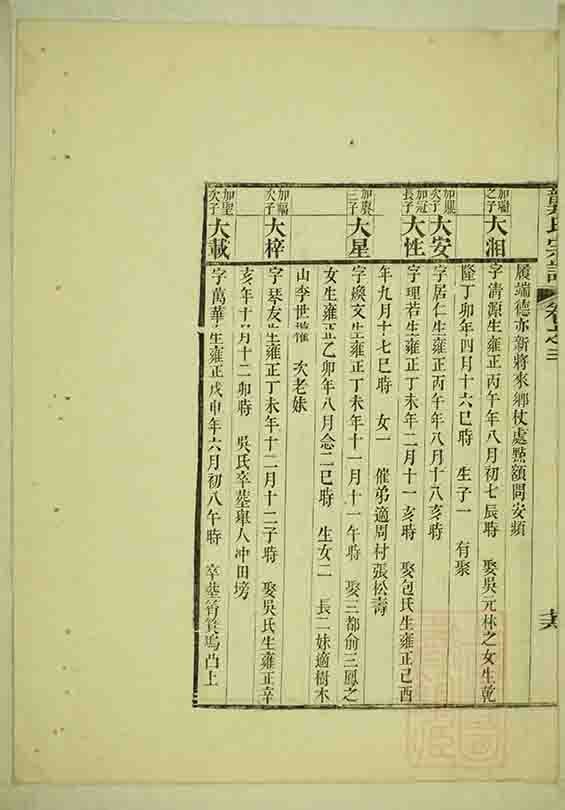 氏宗譜 卷之三
履端德亦新將來鄉杖處點額問安頻
加 之子 大湘 字清源生雍正丙午年八月初七辰時 娶吳元林之女生乾
隆丁卯年四月十六巳時 生子一 有聚
加 次子 大安 字居仁生雍正丙午年八月十八亥時
加冠長子 大性 字理若生雍正丁未年二月十一亥時 娶包氏生雍正己酉
年九月十七巳時 女一 催弟適周村張松壽
加 三子 大星 字煥文生雍正丁未年十一月十一午時 娶三都俞三鳳之
女生雍正乙卯年八月念二巳時 生女二 長二妹適樹木
山李世 次老妹
加 次子 大梓 字琴友生雍正丁未年十二月十二子時 娶吳氏生雍正辛
亥年十月十二卯時 吳氏卒墓舉人冲田塝
加聖次子 大載 字萬華生雍正戊申年六月初八午時 卒墓筲箕塢凸上